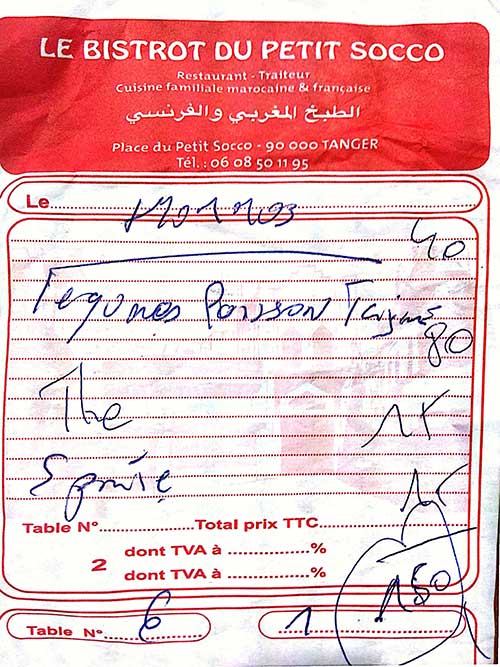 LE BISTROT DU PETIT SOCCO
Restaurant - Traiteur
Cuisine familiale marocaine & française
الطبخ المغربي والفرنسي
Place du Petit Socco - 90 000 TANGER
Tél. : 06 08 50 11 95
Le
40
Legumes Poisson Tajine
80
The
15
Sprite
15
Table N° Total prix TTC
2 dont TVA à %
dont TVA à %
150
Table N° 6 1